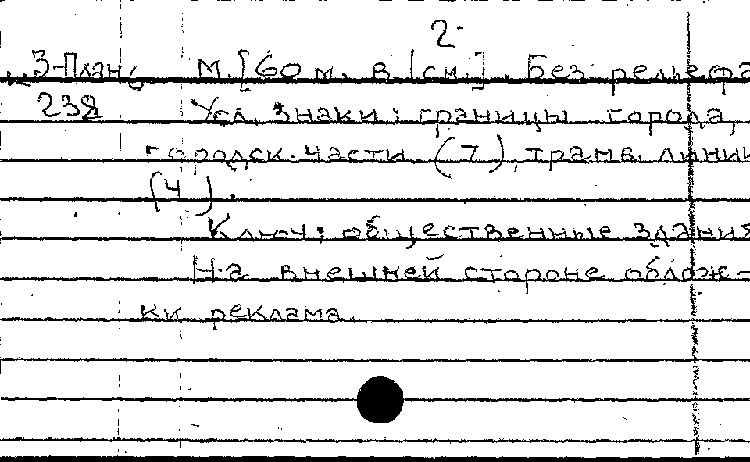 2.
З-План, М. [60 м. в 1 см.]. Без рельефа
238 Усл. знаки: границы города,
городск. части (7), трамв. линии
(4).
Ключ: общественные здания
На внешней стороне облож-
ки реклама.